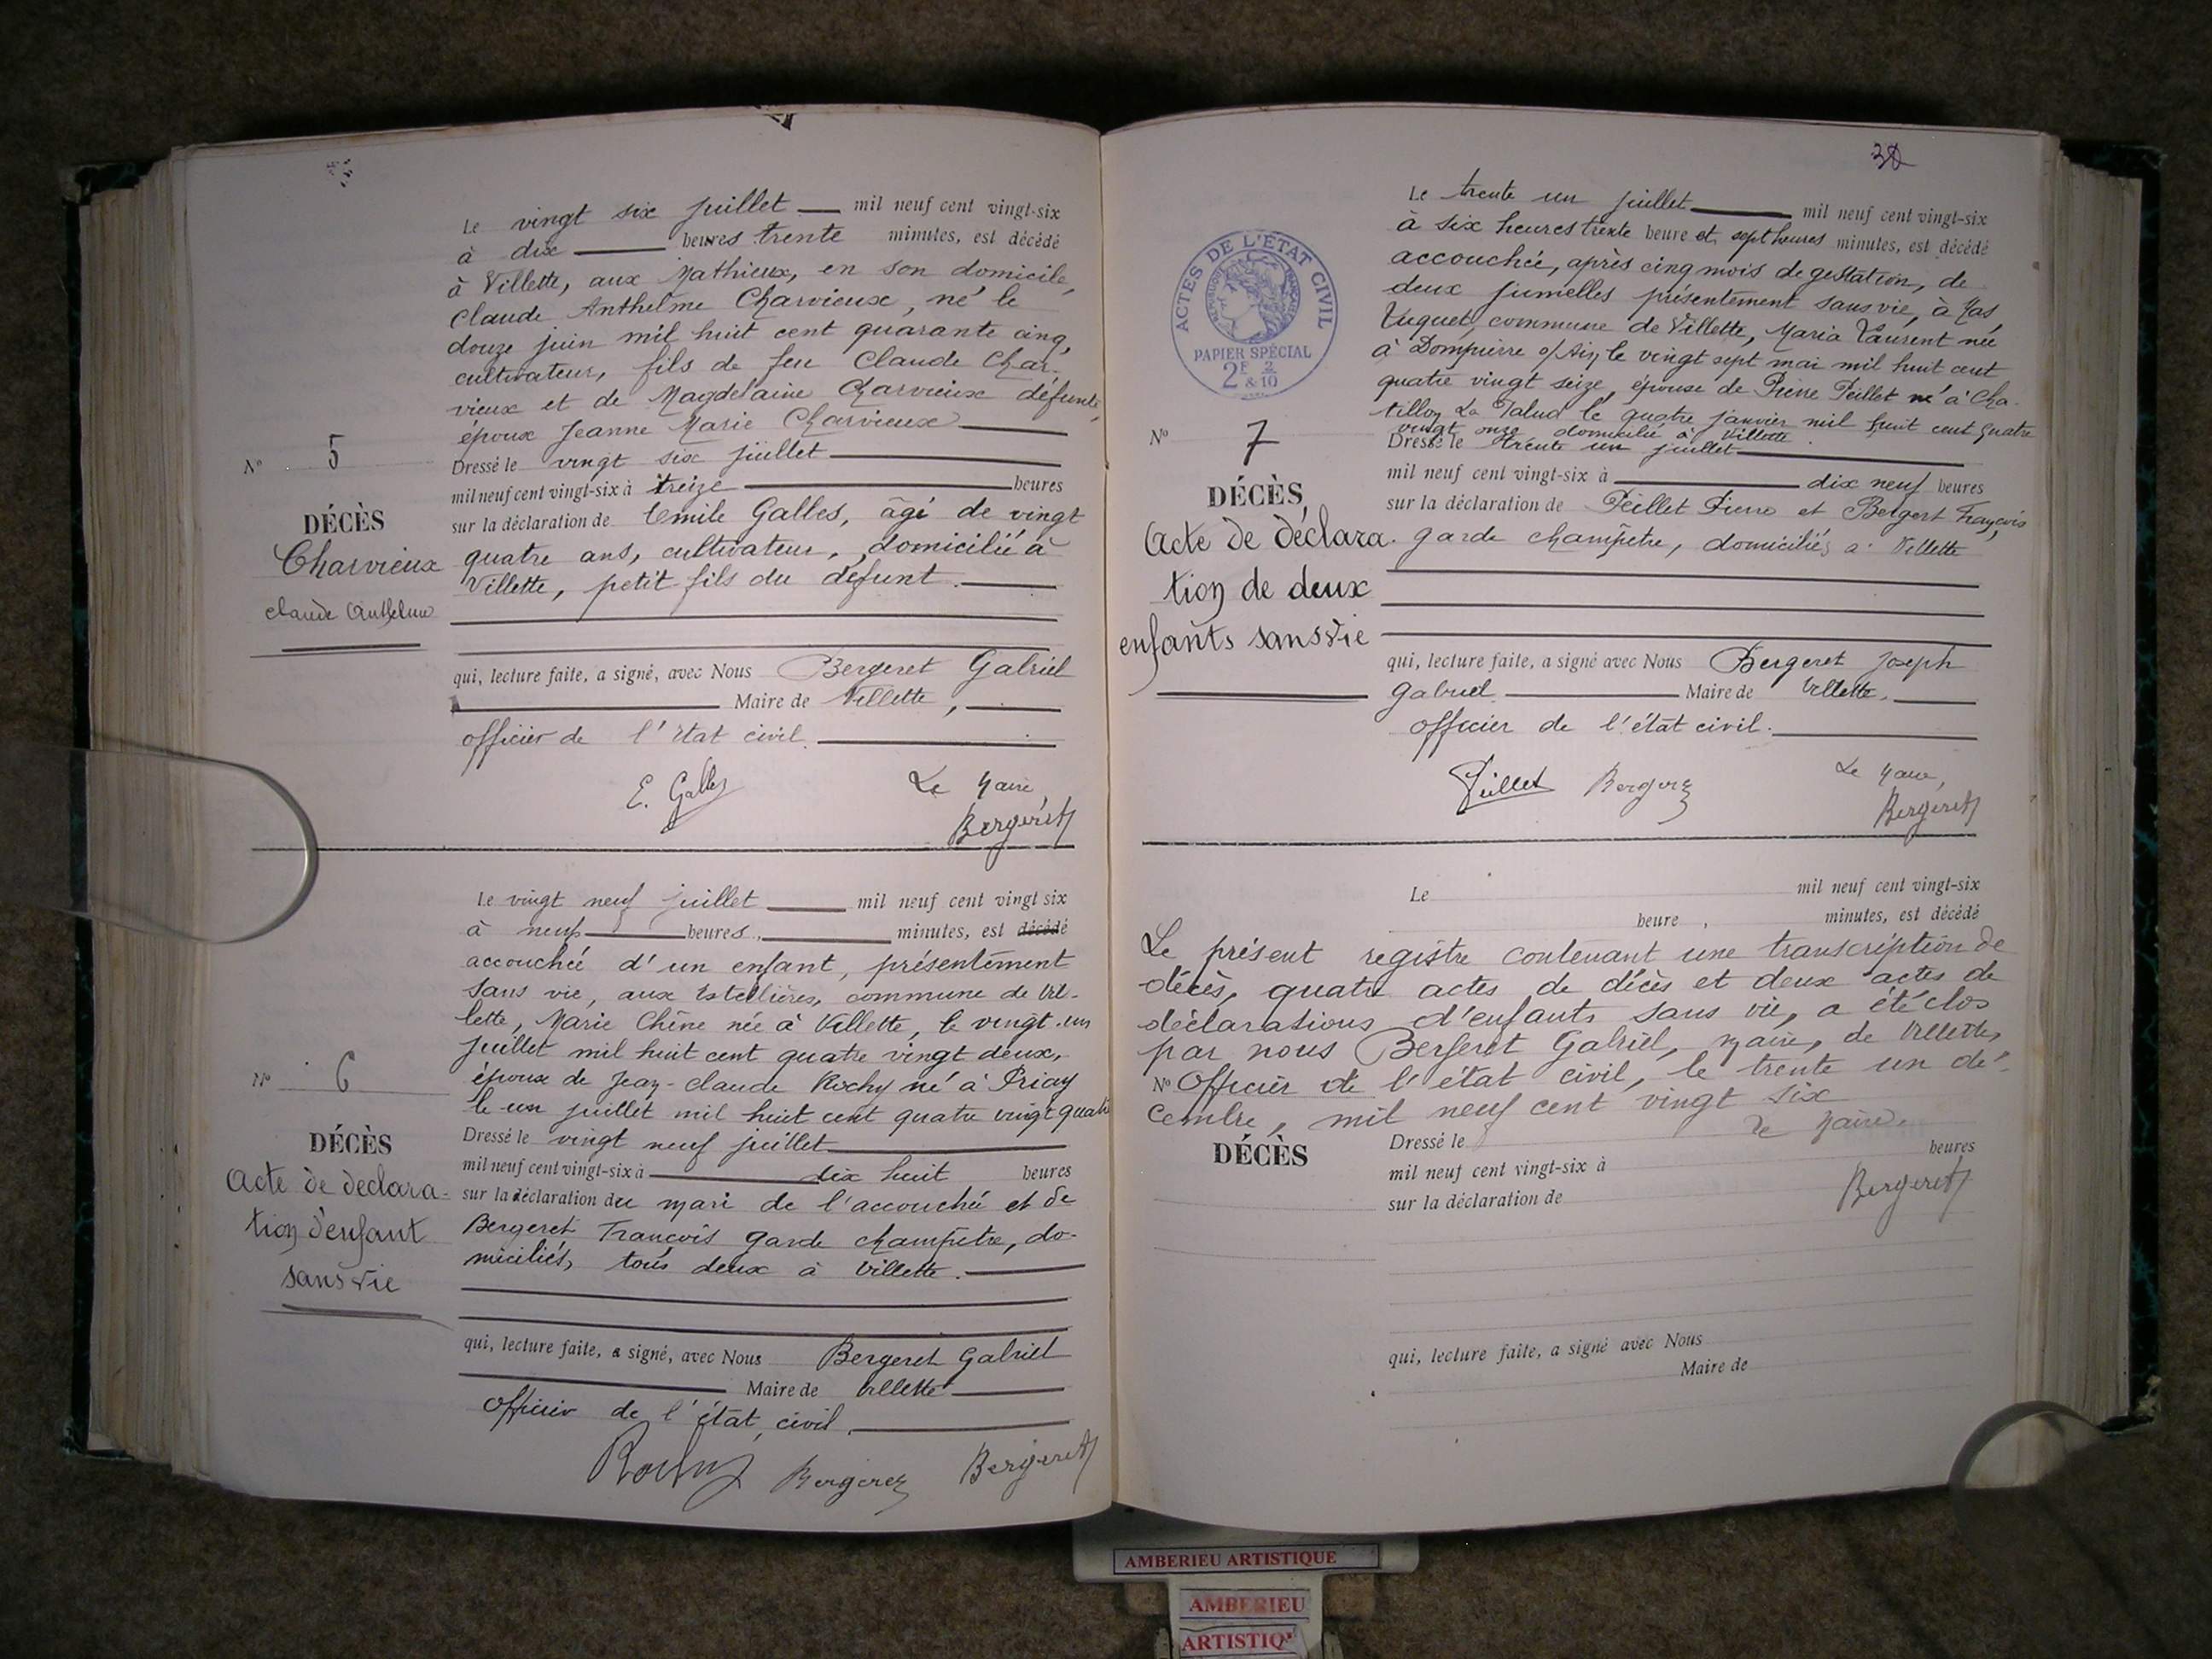 Le vingt six juillet mil neuf cent vingt-six
à dix heures trente minutes, est décédé
à Villette, aux Mathieux, en son domicile,
Claude Anthelme Charvieux, né le
douze juin mil huit cent quarante cinq,
cultivateur, fils de feu Claude Char-
vieux et de Magdelaine Charvieux défunte,
époux Jeanne Marie Charvieux
N° 5
Dressé le vingt six juillet
mil neuf cent vingt-six à treize heures
DÉCÈS
sur la déclaration de Emile Galles, âgé de vingt
Charvieux
quatre ans, cultivateur, domicilié à
Villette, petit fils du défunt.
Claude Anthelme
qui, lecture faite, a signé, avec Nous Bergeret Gabriel
Maire de Villette,
officier de l'état civil.
E. Galles Le Maire,
Bergeret
Le vingt neuf juillet mil neuf cent vingt six
à neuf heures, minutes, est décédé
accouchée d'un enfant, présentement
sans vie, aux Estellières, commune de Vil-
lette, Marie Chêne née à Villette, le vingt-un
juillet mil huit cent quatre vingt deux,
N° 6
épouse de Jean-Claude Rochy né à Priay
le un juillet mil huit cent quatre vingt quatre
DÉCÈS
Dressé le vingt neuf juillet
mil neuf cent vingt-six à dix huit heures
Acte de déclara-
tion d'enfant
sans vie
sur la déclaration du mari de l'accouchée et de
Bergeret François garde champêtre, do-
miciliés, tous deux à Villette.
qui, lecture faite, a signé, avec Nous Bergeret Gabriel
Maire de Villette
officier de l'état civil.
Rochy Bergerez Bergeret
38
ACTES DE L'ÉTAT CIVIL
PAPIER SPÉCIAL
2F 2/10
Le trente un juillet mil neuf cent vingt-six
à six heures trente heure et sept heures minutes, est décédé
accouchée, après cinq mois de gestation, de
deux jumelles présentement sans vie, à Mas
commune de Villette, Maria Laurent née
à Dompierre s/Ain le vingt sept mai mil huit cent
quatre vingt seize, épouse de Pierre Peillet né à Cha-
tillon La Palud le quatre janvier mil huit cent quatre
vingt onze domicilié à Villette
N° 7
Dressé le trente un juillet
mil neuf cent vingt-six à dix neuf heures
DÉCÈS
sur la déclaration de Peillet Pierre et Bergeret François
Acte de déclara-
tion de deux
enfants sans vie
garde champêtre, domiciliés à Villette
qui, lecture faite, a signé avec Nous Bergeret Joseph
Gabriel Maire de Villette,
officier de l'état civil.
Peillet Bergerez Le Maire,
Bergeret
Le mil neuf cent vingt-six
heure, minutes, est décédé
Le présent registre contenant une transcription de
décès, quatre actes de décès et deux actes de
déclarations d'enfants sans vie, a été clos
par nous Bergeret Gabriel, maire, de Villette,
N° Officier de l'état civil, le trente un dé-
cembre, mil neuf cent vingt six
Le Maire.
DÉCÈS
Dressé le
mil neuf cent vingt-six à heures
sur la déclaration de
Bergeret
qui, lecture faite, a signé avec Nous
Maire de
AMBERIEU ARTISTIQUE
AMBERIEU
ARTISTIQ